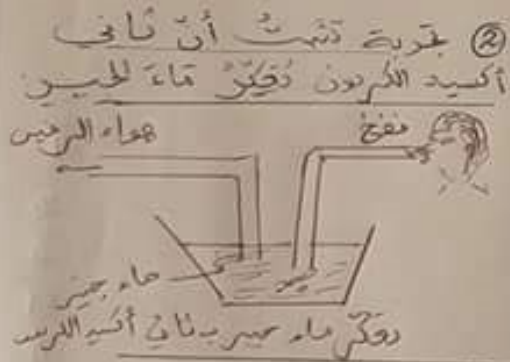 ② تجربة تثبت أنّ ثاني
أكسيد الكربون يُعكِّرُ مَاءَ الجير
هواء الزفير
نفخ
ماء جير
تعكّر ماء جير بثاني أكسيد الكربون